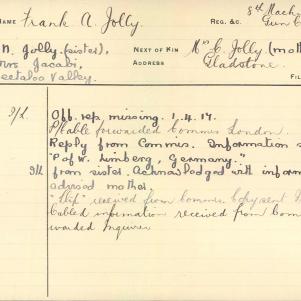 NAME Frank A. Jolly. REG. &C. 8th Mach
Gun C
N. Jolly. (sister). NEXT OF KIN Mrs C. Jolly (moth
Mrs Jacobi, ADDRESS Gladstone.
eetaloo Valley. FIL
Off. rep. missing. 1.4.17.
Cable forwarded Commrs London.
Reply from Commrs. Information s
"P of W. Limberg, Germany."
from sister. Acknowledged with inform
advised mother.
"Slip" received from Commrs Copy sent
Cabled information received from Com
warded Inquirer